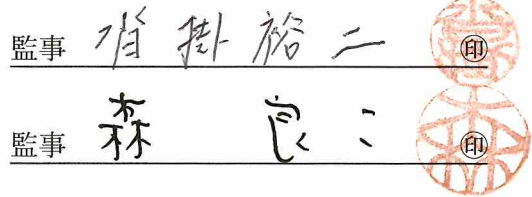 監事 沓掛裕二 ㊞
監事 森 良二 ㊞